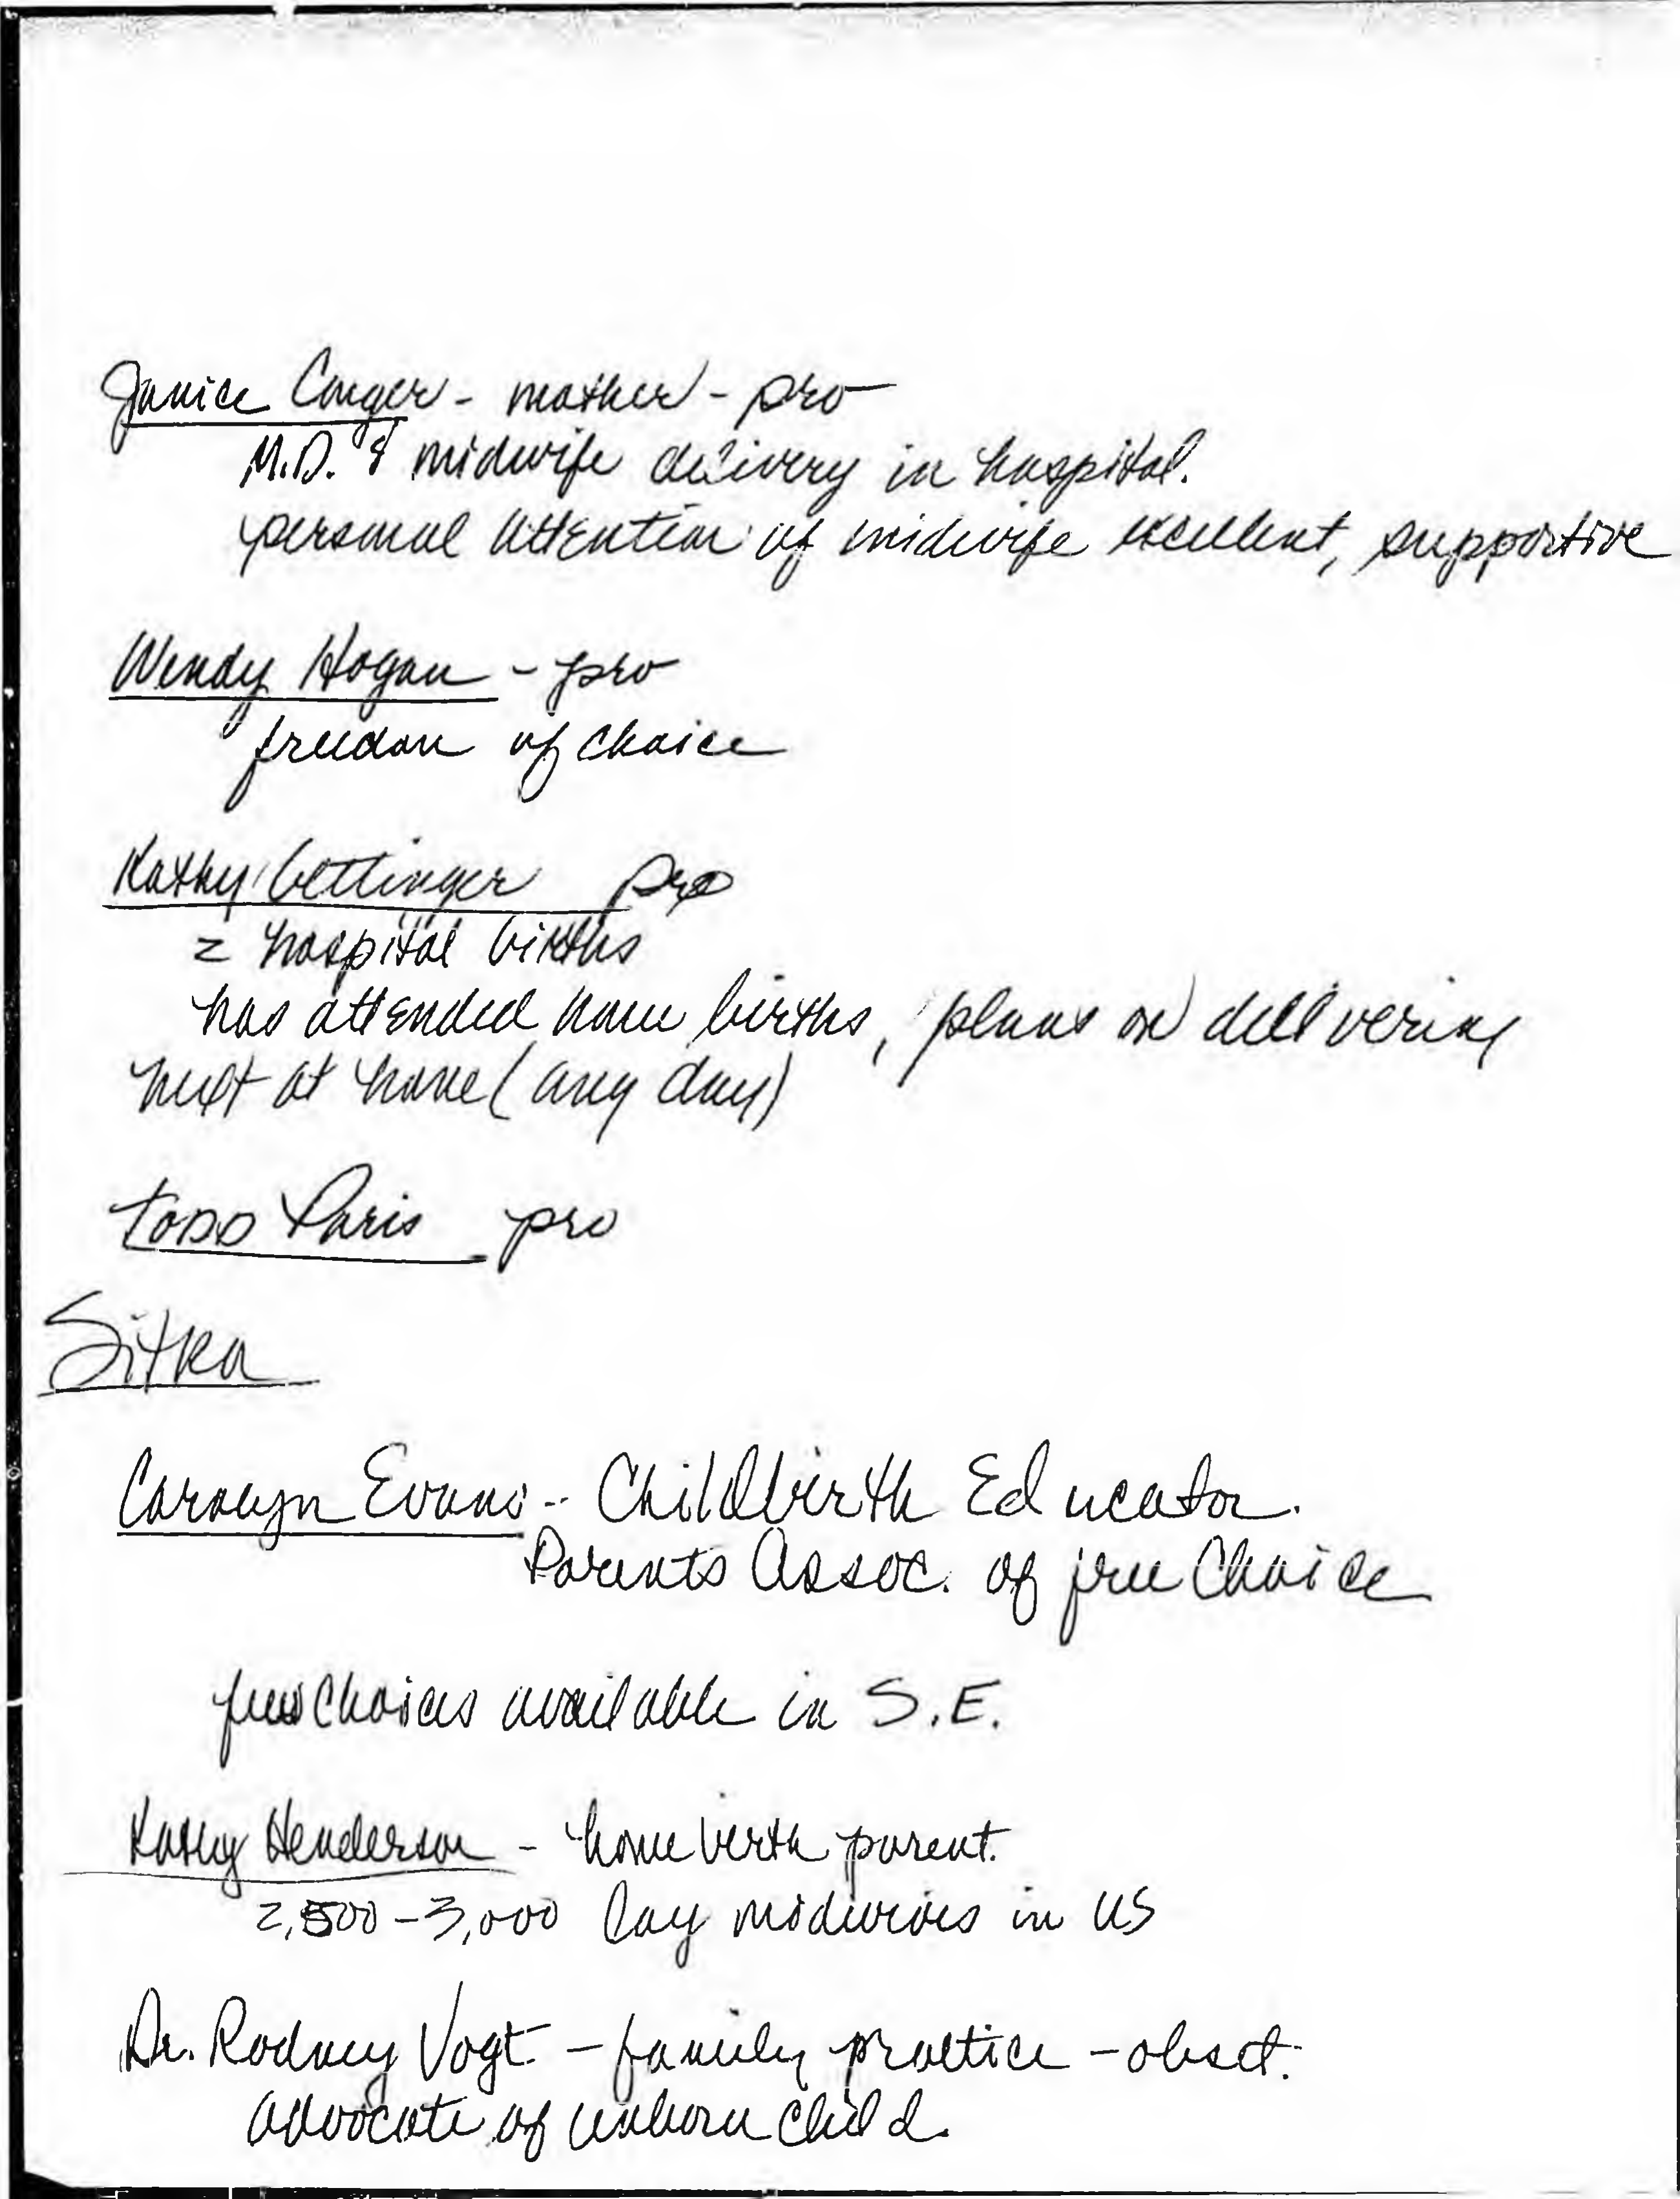 Janice Conger - mother - pro
M.D. & midwife delivery in hospital.
personal attention of midwife excellent, supportive
Wendy Hogan - pro
freedom of choice
Kathy Gettinger pro
2 hospital births
has attended home births, plans on delivering
next at home (any day)
Todd Paris pro
Sitka
Carolyn Evans - Childbirth Educator.
Parents Assoc. of free Choice
few choices available in S.E.
Kathy Henderson - home birth parent.
2,500 - 3,000 lay midwives in US
Dr. Rodney Vogt - family practice - obset.
advocate of unborn child.